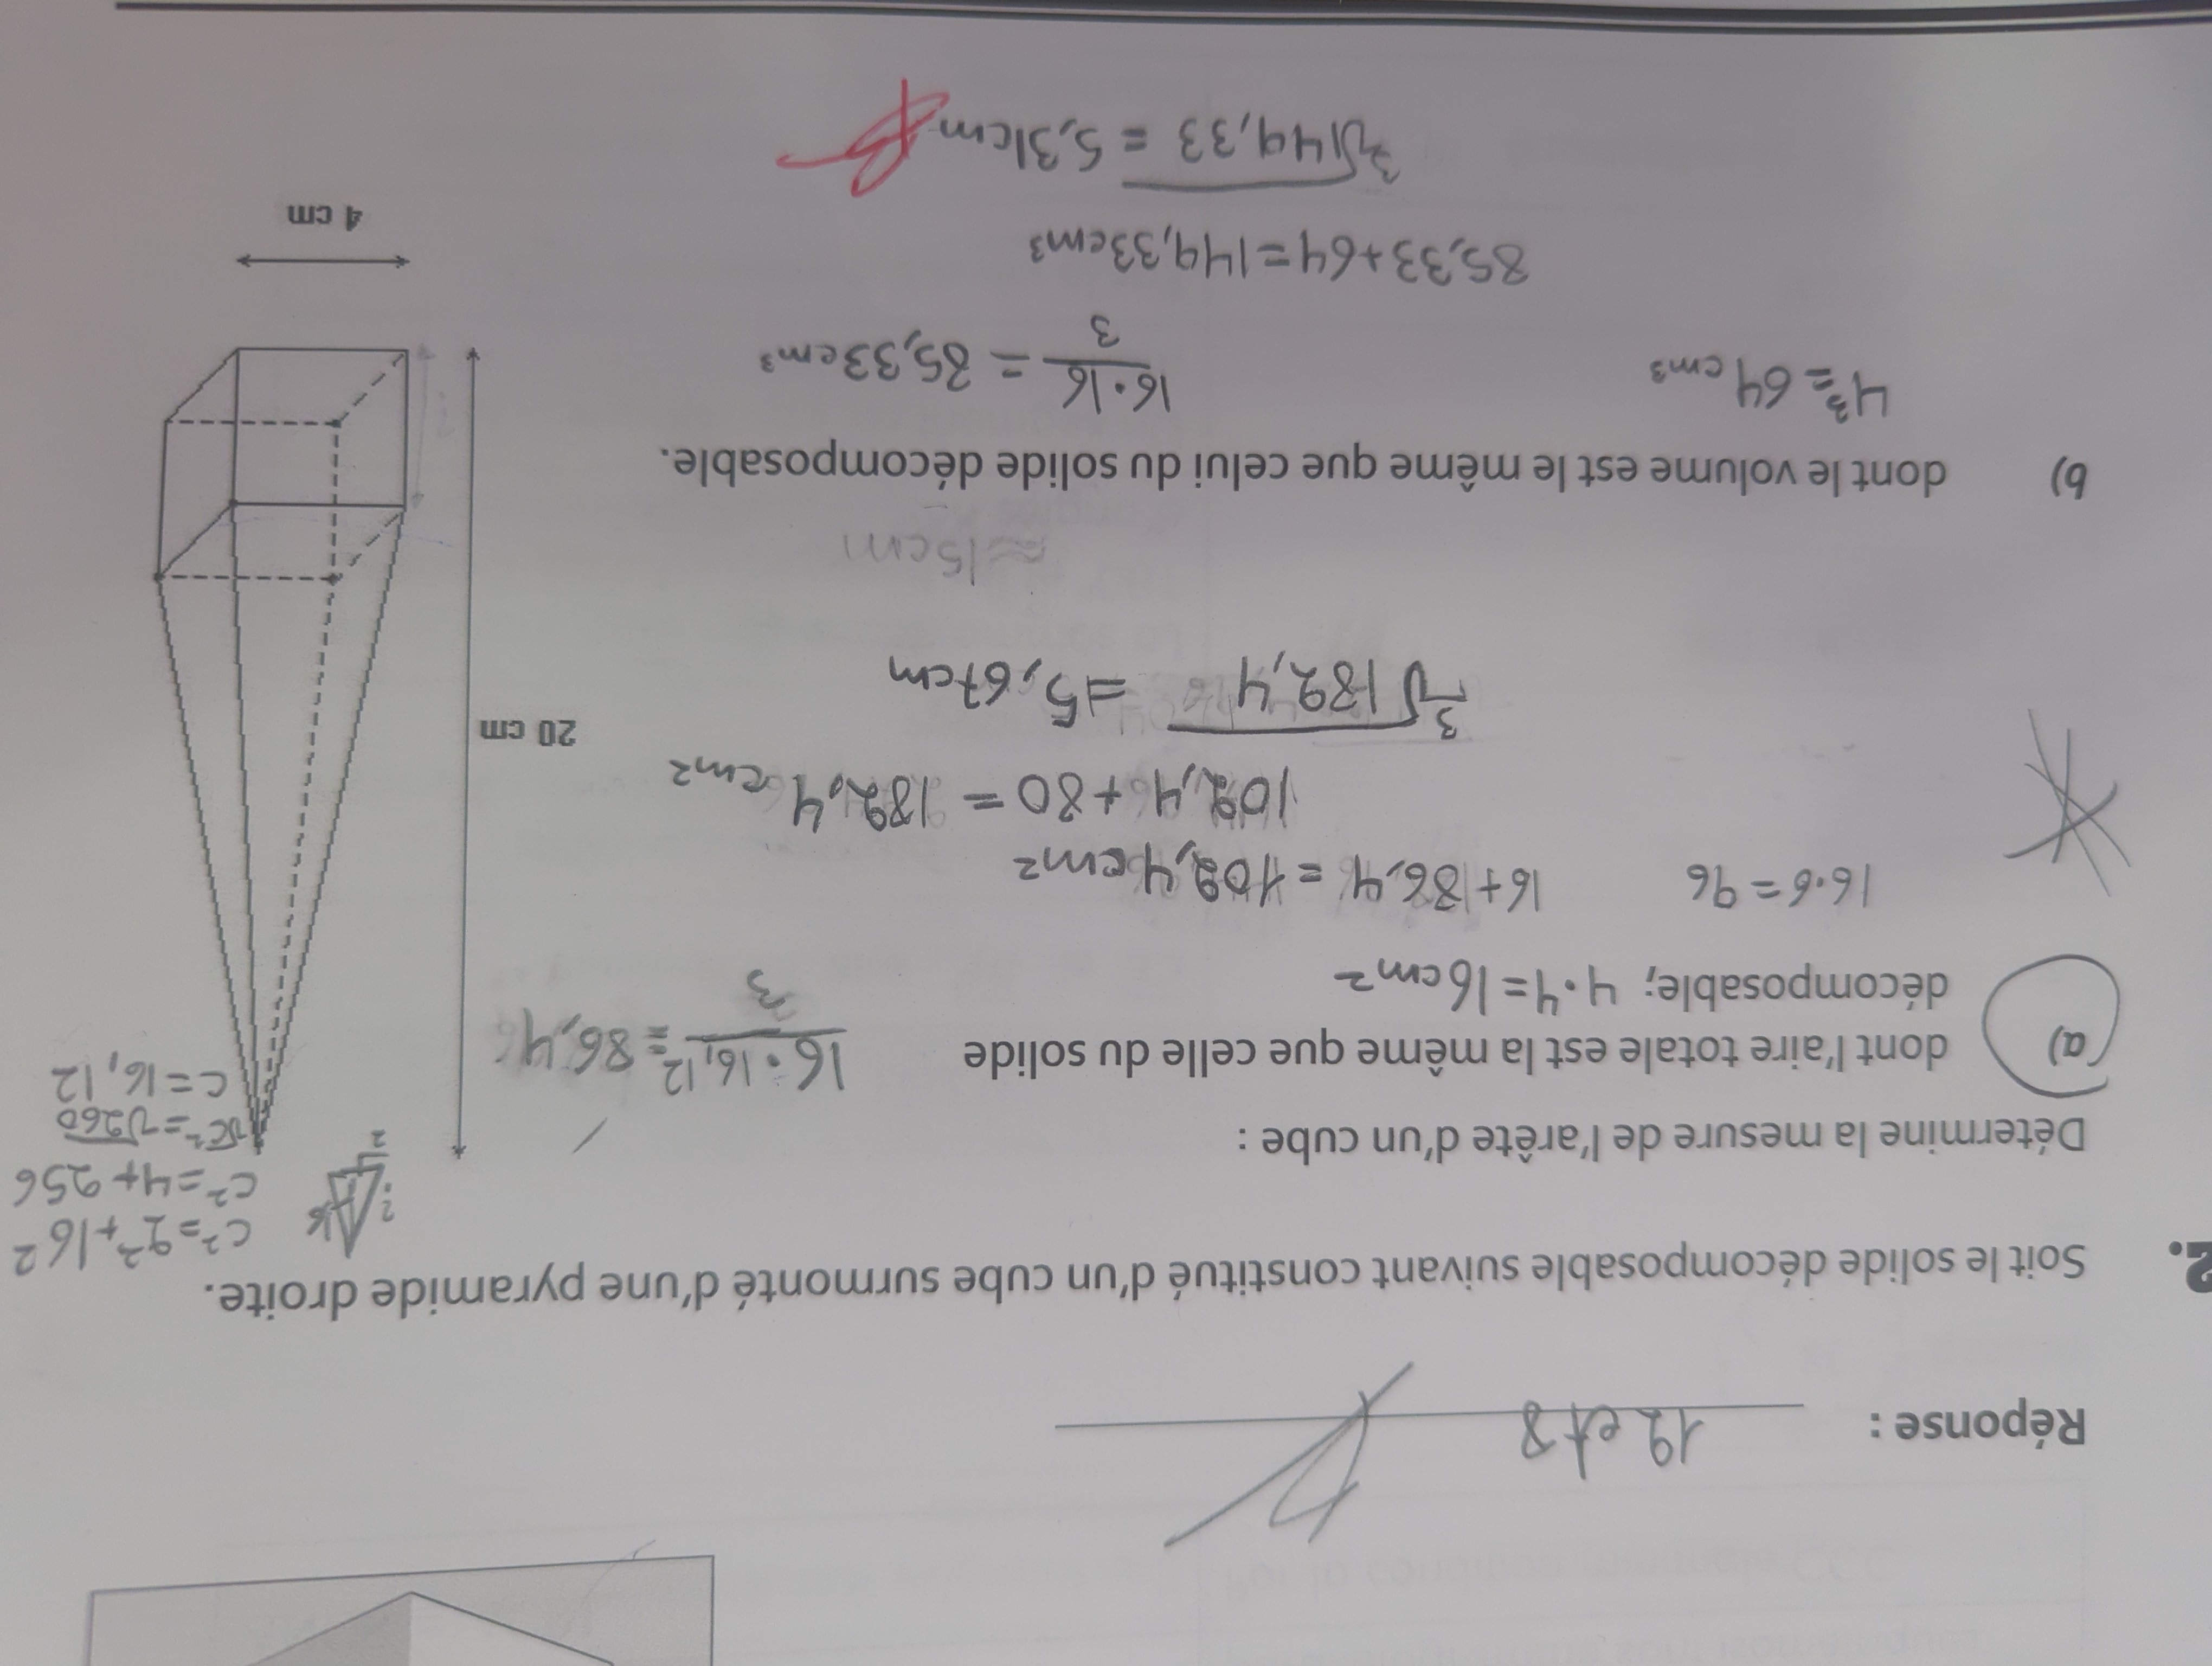 Réponse : 12 et 8
2. Soit le solide décomposable suivant constitué d'un cube surmonté d'une pyramide droite.
c²=2²+16²
c²=4+256
√c²=√260
c=16,12
? 16
2
Détermine la mesure de l'arête d'un cube :
a) dont l'aire totale est la même que celle du solide
décomposable; 4·4=16cm²
16·16,12 / 3 = 86,4
16·6=96
16+86,4=102,4cm²
102,4+80=182,4cm²
³√182,4 =5,67cm
≈15cm
20 cm
b) dont le volume est le même que celui du solide décomposable.
4³=64cm³
16·16 / 3 = 85,33cm³
85,33+64=149,33cm³
³√149,33 = 5,31cm
4 cm